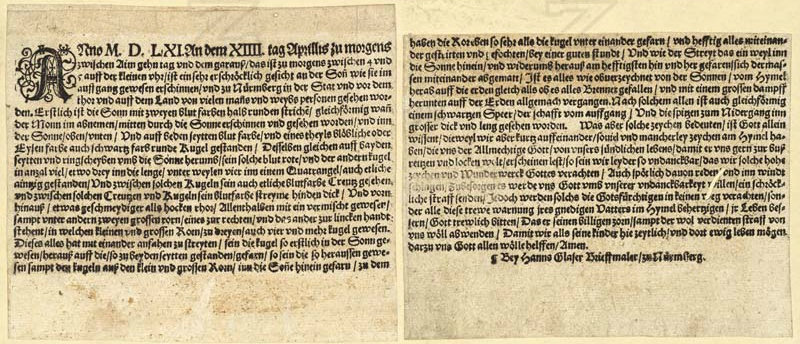 ANno M. D. LXI. An dem XIIII. tag Aprillis zu morgens
zwischen
auff der kleinen vhr / ist ein sehr erschröcklich gesicht an der Son wie sie im
auff gang gewesen erschinnen / vnd zu Nürmberg in der Stat vnd vor dem
thor vnd auff dem Land von vielen mans vnd weybs personen gesehen wor-
den. Erstlich ist die Sonn mit zweyen blutfarben halb runden strichẽ / gleichförmig wañ
der Monn im abnemen / mitten durch die Sonn erschinnen vnd gesehen worden / vnd inn
der Sonne / oben / vnten / Vnd auff beden seytten blut farbe / vnd eines theyls blöbliche oder
Eysen farbe auch schwartz farb runde Kugel gestanden / Desselben gleichen auff bayden
seytten vnd ring scheyben vmb die Sonne herumb / sein solche blut rote / vnd der andern kugel
in anzal viel / etwo drey inn die lenge / vnter weylen vier inn einem Quatrangel / auch etliche
ainzig gestanden / Vnd zwischen solchen Kugeln sein auch etliche blutfarbe Creutz gesehen /
vnd zwischen solchen Creutzen vnd Kugeln sein blutfarbe streyme hinden dick / Vnd vorn
hinauß / etwas geschmeydiger alls hocken rhor / Allenthalben mit ein vermischt gewesen /
sampt vnter andern zweyen grossen rorn / eines zur rechten / vnd das ander zur lincken handt
stehent / in welchen kleinen vnd grossen Rorn / zu dreyen / auch vier vnd mehr kugel gewesen.
Dieses alles hat mit einander anfahen zu streyten / sein die kugel so erstlich in der Sonn ge-
wesen / herauß auff die / so zu beyden seytten gestanden / gefarn / so sein die so heraussen gewe-
sen sampt den kugeln auß den klein vnd grossen Rorn / inn die Soñe hinein gefarn / zu dem
haben die Kor eben so sehr als die kugel vnter einander gefarn / vnd hefftig alles miteinan-
der gestritten vnd gefochten / bey einer guten stundt / Vnd wie der Streyt das ein weyl inn
die Sonne hinein / vnd widerumb herauß am hefftigsten hin vnd her gefaren / sich der mas-
sen miteinander abgematt / Ist es alles wie ob verzeychnet von der Sonnen / vom Hymel
herab auff die erden gleich alls ob es alles Brennet gefallen / vnd mit einem grossen dampff
herunten auff der Erden allgemach vergangen. Nach solchem allen ist auch gleichförmig
einem schwartzen Speer / der schafft vom auffgang / Vnd die spitzen zum Nidergang inn
grosser dick vnd leng gesehen worden. Was aber solche zeychen bedeuten / ist Gott allein
wissent / die weyl wir aber kurtz auff einander / so viel vnd mancherley zeychen am Hymel ha-
ben / die vns der Allmechtige Gott / von vnsers sündlichen lebens / damit er vns gern zur buß
reitzen vnd locken wolt / erscheinen lest / so sein wir leyder so vndanckbar / das wir solche hohe
zeychen vnd Wunderwerck Gottes verachten / Auch spötlich dauon reden / vnd inn windt
schlagen, Zubesorgen es werde vns Gott vmb vnserer vndanckbarkeyt willen / ein schröck-
liche straff senden / Jedoch werden solchs die Gotsförchtigen in keinen weg verachten / son-
der alle diese trewe warnung jres gnedigen Vatters im Hymel behertzigen / jr Leben bes-
sern / Gott trewlich bitten / Das er seinen billigen zorn / sampt der wol verdienten straff von
vns wöll abwenden / Damit wir alls seine kinder hie zeytlich / vnd dort ewig leben mögen.
darzu vns Gott allen wölle helffen / Amen.
¶ Bey Hanns Glaser Brieffmaler / zu Nürmberg.